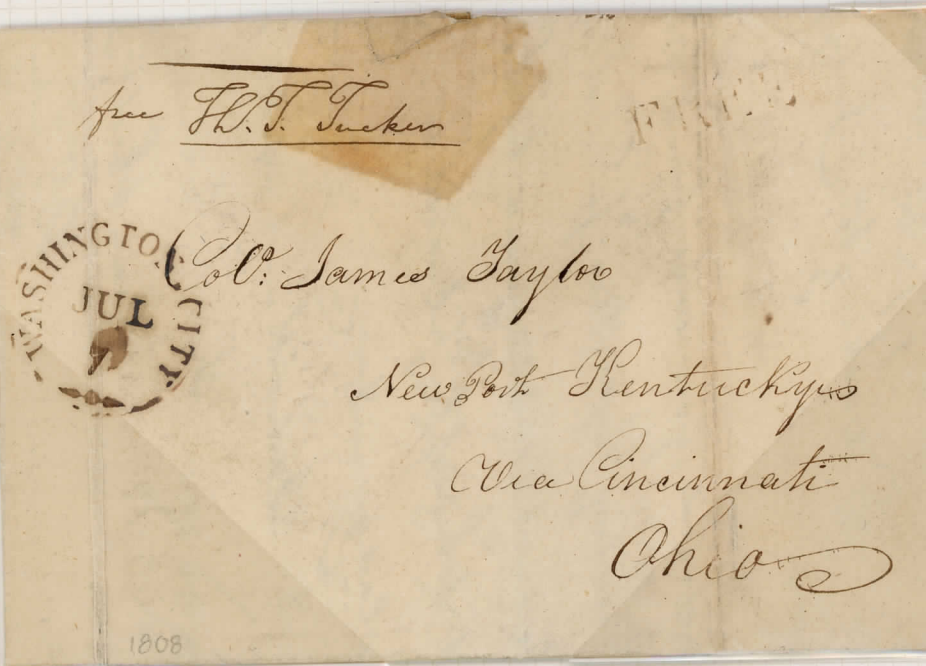 free Th. T. Tucker
FREE
WASHINGTON CITY
JUL
7
Col: James Taylor
New Port Kentucky
Via Cincinnati
Ohio
1808